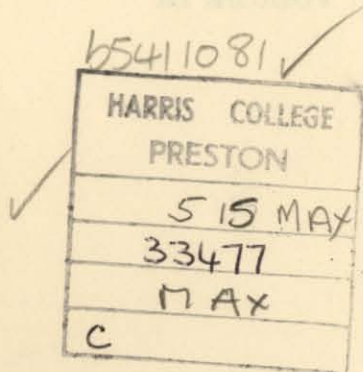 b5411081
HARRIS COLLEGE
PRESTON
515 MAX
33477
MAX
C